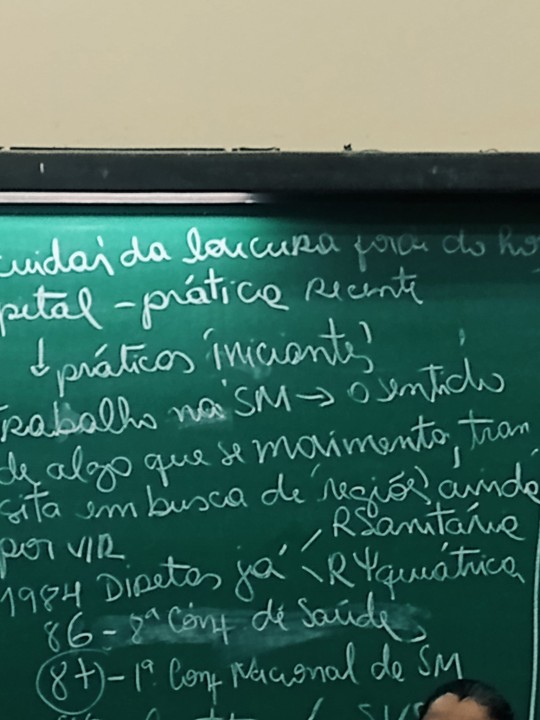 cuidar da loucura fora do hos
pital - prática recente
↓ práticas 'iniciantes'
Trabalho na SM → o sentido
de algo que se movimenta, tran
sita em busca de 'regiões' ainda
por vir
1984 Diretas já / R Sanitária
\ R Ψquiátrica
86 - 8ª Conf de Saúde
87 - 1ª Conf Nacional de SM